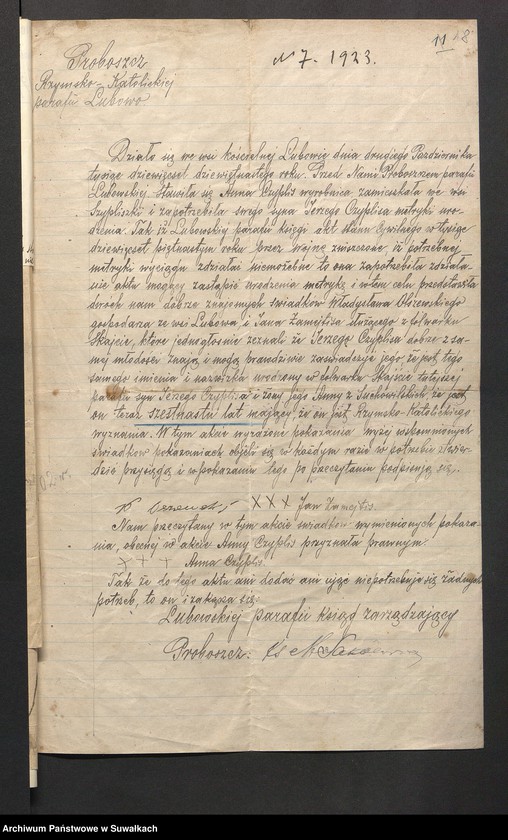 11 18
Proboszcz
N 7. 1923.
Rzymsko-Katolickiej
parafii Lubowo
Działo się we wsi kościelnej Lubowie dnia drugiego Pazdziornika
tysiąc dziewięcset dziewiętnastego roku. Przed Nami Proboszczem parafii
Lubowskiej stawiła się Anna Czyplis wyrobnica zamieszkała we wsi
Szypliszki i zapotrzebała swego syna Jerzego Czyplisa metryki uro-
dzenia. Tak iż Lubowskiej parafii księgi akt stanu cywilnego w tysiąc
dziewięcset piętnastym roku przez wojnę zniszczone, iż potrzebnej
metryki wyciągu zdziałać niemożebne to ona zapotrzebała zdziała-
nie aktu mogący zastąpić urodzenia metrykę i w tem celu przedstawiła
dwoch nam dobrze znajomych swiadków Władysława Olszewskiego
gospodarza ze wsi Lubowa i Jana Zamejtisa służącego z folwarku
Skajście, które jednogłośnie zeznali że Jerzego Czyplisa dobrze z sa-
mej młodości znają i mogą prawdziwie zaświadczyć jego że pod tego
samego imienia i nazwiska urodzony w folwarku Skajście tutejszej
parafii syn Jerzego Czyplisa i żony jego Anny z Tuchowilskich że jest
on teraz szesnastu lat mający, że on jest Rzymsko-Katolickiego
wyznania. W tym akcie wyrażone pokazania wyżej wspomnionych
swiadków pokazaniach objeli się w każdym razie w potrzebie stwier-
dzić przysięgą i w pokazaniu tego po przeczytaniu podpisują się.
XXX Jan Zamejtis.
Nam przeczytany w tym akcie swiadków wymienionych pokaza-
nia, obecnej w akcie Anny Czyplis przyznała prawnym.
+ + + Anna Czyplis.
Tak że do tego aktu ani dodać ani ująć niepotrzebuje się żadnych
potrzeb, to on i zakąsa się.
Lubowskiej parafii ksiądz zarządzający
Proboszcz: Ks
Archiwum Państwowe w Suwałkach